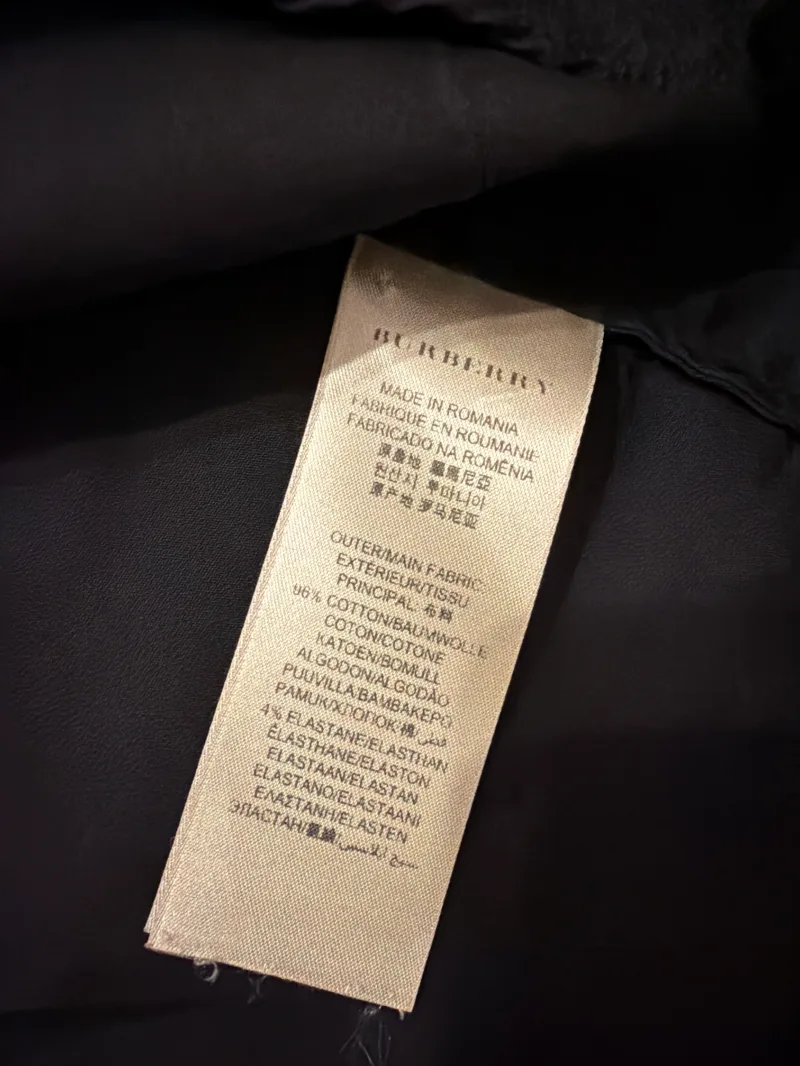 BURBERRY
MADE IN ROMANIA
FABRIQUÉ EN ROUMANIE
FABRICADO NA ROMÊNIA
原產地 羅馬尼亞
원산지 루마니아
原产地 罗马尼亚
OUTER/MAIN FABRIC:
EXTÉRIEUR/TISSU
PRINCIPAL: 布料
96% COTTON/BAUMWOLLE
COTON/COTONE
KATOEN/BOMULL
ALGODON/ALGODÃO
PUUVILLA/ΒΑΜΒΑΚΕΡΟ
PAMUK/ХЛОПОК/棉/قطن
4% ELASTANE/ELASTHAN
ÉLASTHANE/ELASTON
ELASTAAN/ELASTAN
ELASTANO/ELASTAANI
ΕΛΑΣΤΑΝΗ/ELASTEN
ЭЛАСТАН/